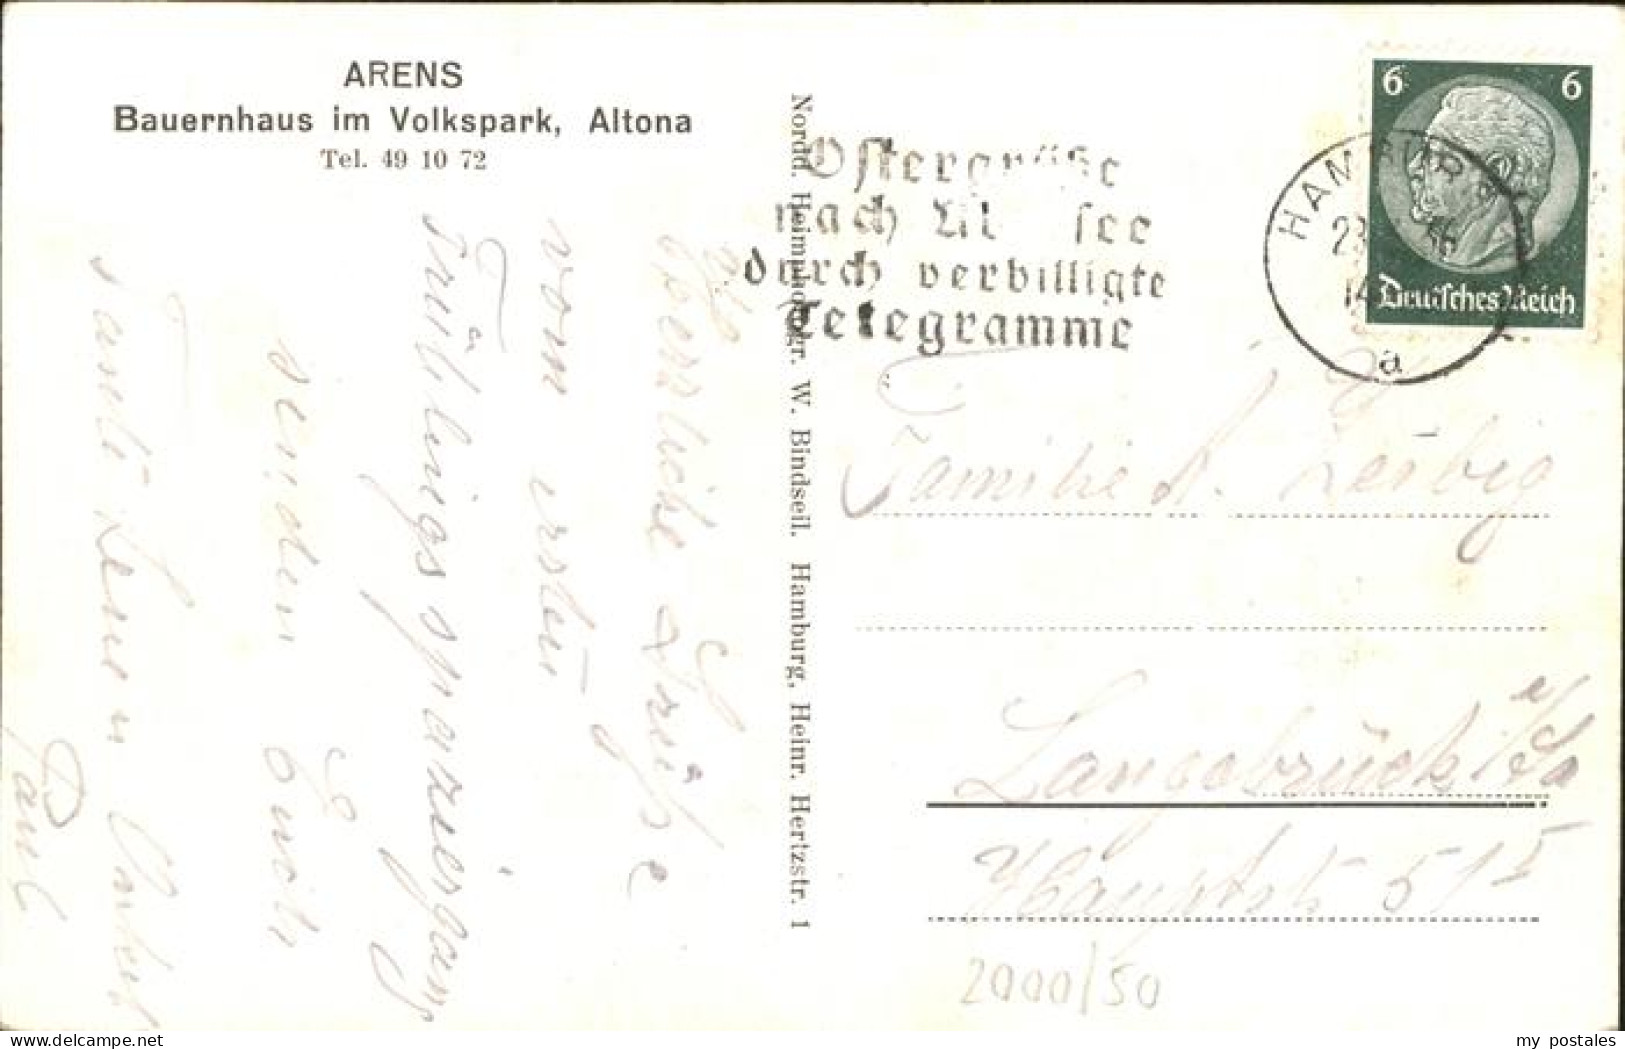 ARENS
Bauernhaus im Volkspark, Altona
Tel. 49 10 72
Herzliche Grüße
vom ersten
Frühlingsspaziergang
senden Euch
Tante Lene u Onkel
Paul
Nordd. Heimphotogr. W. Bindseil. Hamburg, Heinr. Hertzstr. 1
Ostergrüße
nach see
durch verbilligte
Telegramme
HAMBURG
23 36
14
a
6 6
Deutsches Reich
Familie A. Leibig
Langebrück i/Sa
Hauptstr 51 I
2000/50
my postales